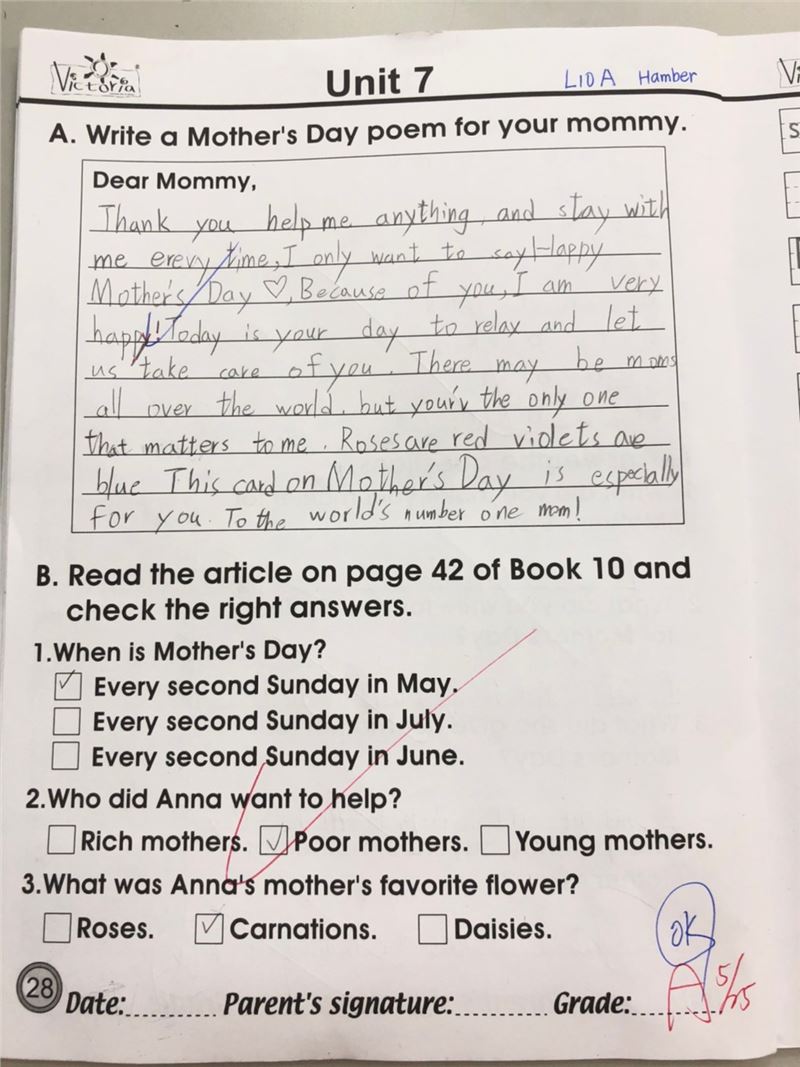 Victoria
Unit 7
L10A Hamber
A. Write a Mother's Day poem for your mommy.
Dear Mommy,
Thank you help me anything, and stay with
me erevy time, I only want to say Happy
Mother's Day ♡, Because of you, I am very
happy! Today is your day to relax and let
us take care of you. There may be moms
all over the world, but your'v the only one
that matters to me. Roses are red violets are
blue This card on Mother's Day is especially
for you. To the world's number one mom!
B. Read the article on page 42 of Book 10 and
check the right answers.
1.When is Mother's Day?
✓ Every second Sunday in May.
Every second Sunday in July.
Every second Sunday in June.
2.Who did Anna want to help?
Rich mothers. ✓ Poor mothers. Young mothers.
3.What was Anna's mother's favorite flower?
Roses. ✓ Carnations. Daisies.
OK
28 Date:......... Parent's signature:......... Grade:......... A 5/25